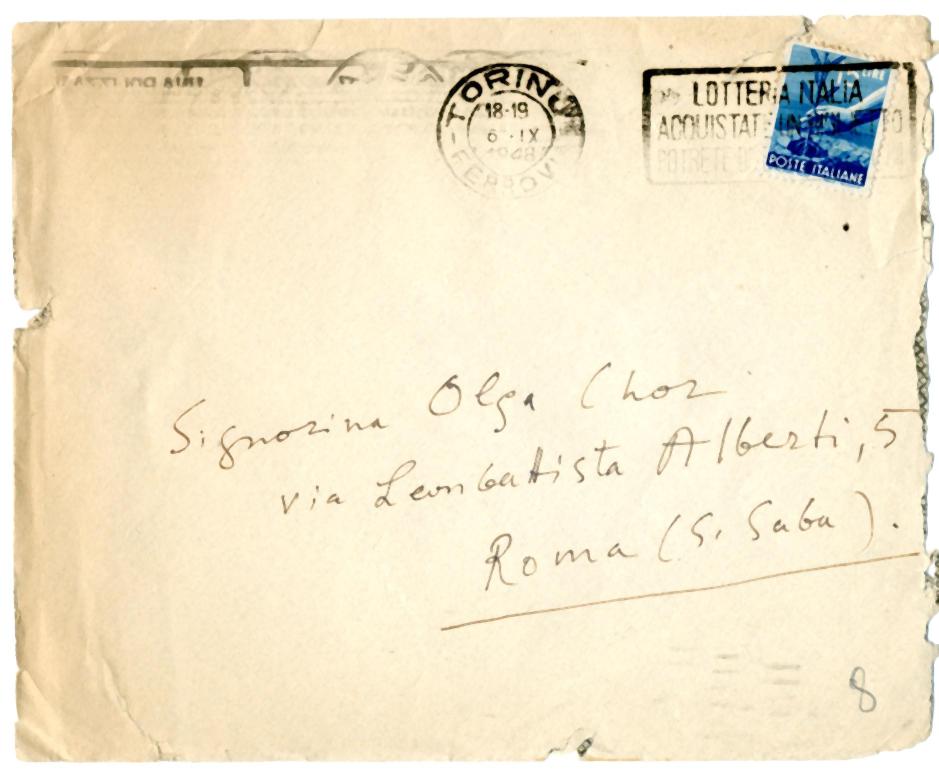 TORINO
18-19
6·IX
1948
FERROVIA
LOTTERIA ITALIA
ACQUISTATE UN
POTRETE
15 LIRE
POSTE ITALIANE
Signorina Olga Chor
via Leonbattista Alberti, 5
Roma (S. Saba).
8